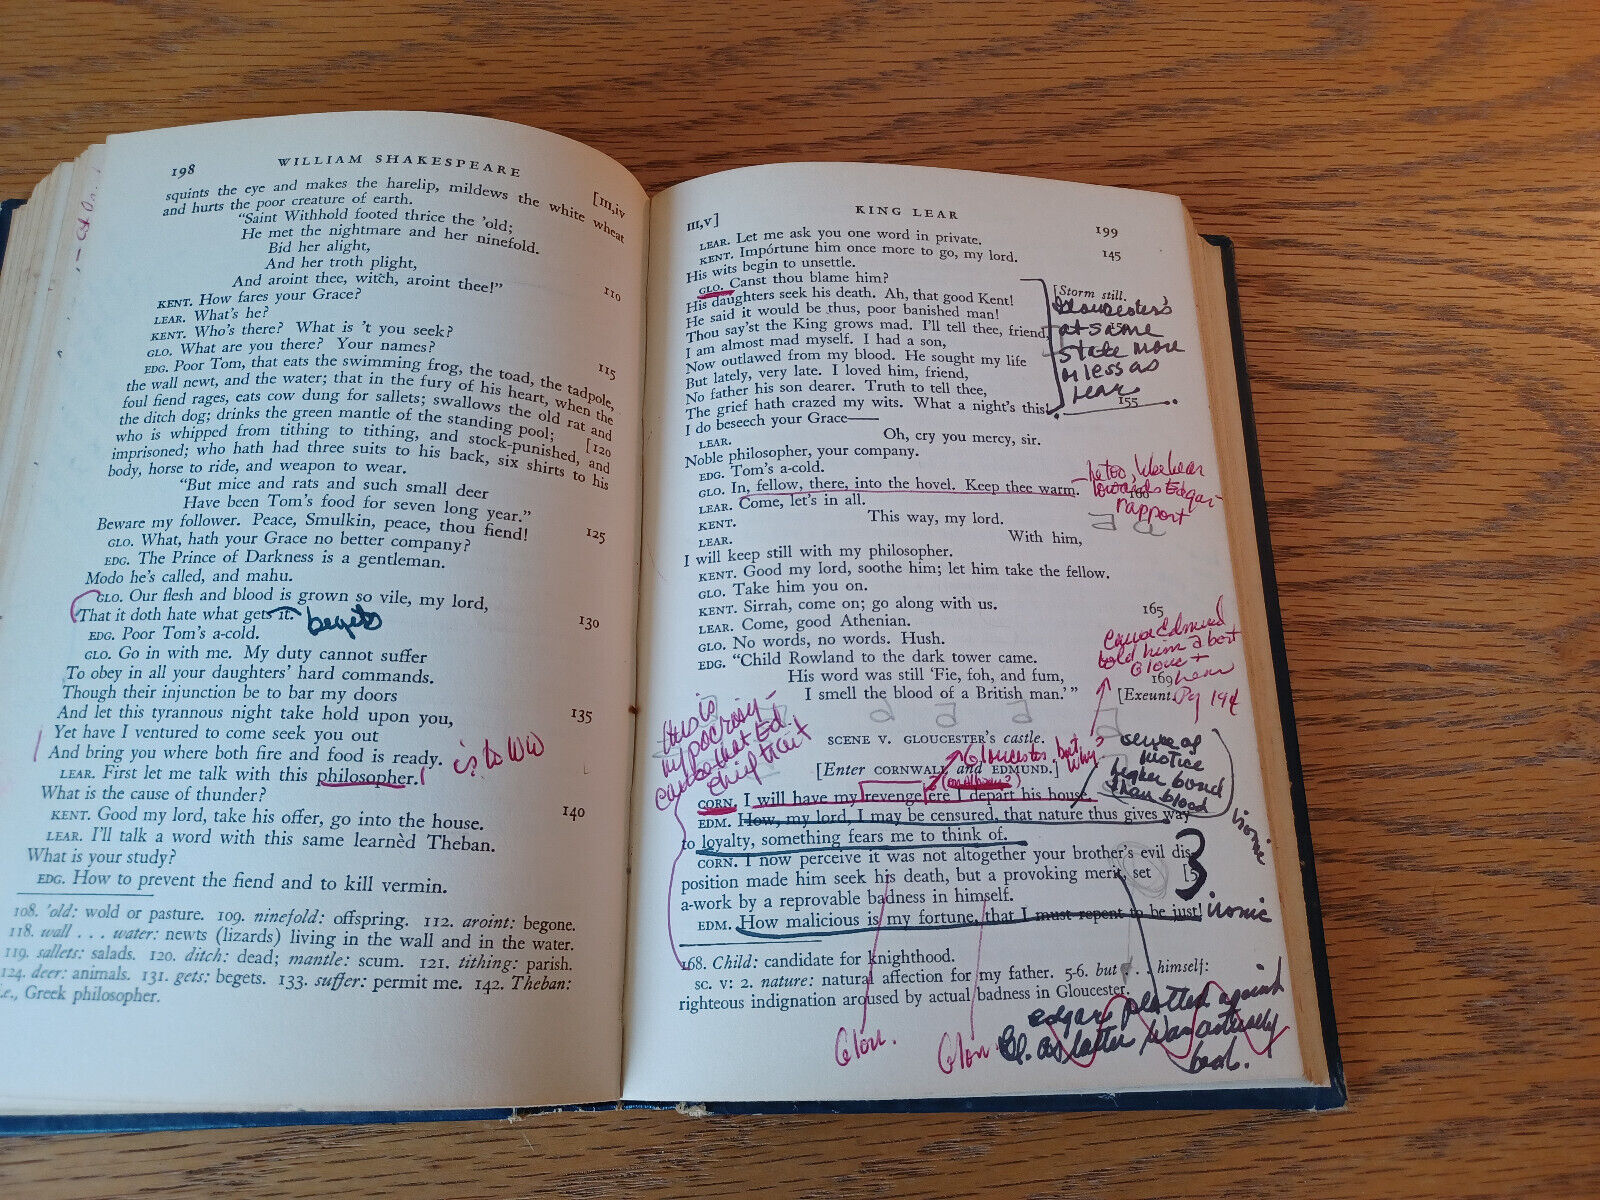 198
WILLIAM SHAKESPEARE
[III,iv
squints the eye and makes the harelip, mildews the white wheat
and hurts the poor creature of earth.
"Saint Withhold footed thrice the 'old;
He met the nightmare and her ninefold.
Bid her alight,
And her troth plight,
And aroint thee, witch, aroint thee!"
110
KENT. How fares your Grace?
LEAR. What's he?
KENT. Who's there? What is 't you seek?
GLO. What are you there? Your names?
115
EDG. Poor Tom, that eats the swimming frog, the toad, the tadpole,
the wall newt, and the water; that in the fury of his heart, when the
foul fiend rages, eats cow dung for sallets; swallows the old rat and
the ditch dog; drinks the green mantle of the standing pool; [120
who is whipped from tithing to tithing, and stock-punished, and
imprisoned; who hath had three suits to his back, six shirts to his
body, horse to ride, and weapon to wear.
"But mice and rats and such small deer
Have been Tom's food for seven long year."
Beware my follower. Peace, Smulkin, peace, thou fiend!
125
GLO. What, hath your Grace no better company?
EDG. The Prince of Darkness is a gentleman.
Modo he's called, and mahu.
GLO. Our flesh and blood is grown so vile, my lord,
That it doth hate what gets it. begets
130
EDG. Poor Tom's a-cold.
GLO. Go in with me. My duty cannot suffer
To obey in all your daughters' hard commands.
Though their injunction be to bar my doors
And let this tyrannous night take hold upon you,
135
Yet have I ventured to come seek you out
And bring you where both fire and food is ready.
LEAR. First let me talk with this philosopher.
What is the cause of thunder?
KENT. Good my lord, take his offer, go into the house.
140
LEAR. I'll talk a word with this same learnèd Theban.
What is your study?
EDG. How to prevent the fiend and to kill vermin.
108. 'old: wold or pasture. 109. ninefold: offspring. 112. aroint: begone.
118. wall . . . water: newts (lizards) living in the wall and in the water.
119. sallets: salads. 120. ditch: dead; mantle: scum. 121. tithing: parish.
124. deer: animals. 131. gets: begets. 133. suffer: permit me. 142. Theban:
i.e., Greek philosopher.
III,v]
KING LEAR
199
LEAR. Let me ask you one word in private.
KENT. Impórtune him once more to go, my lord.
145
His wits begin to unsettle.
GLO. Canst thou blame him?
[Storm still.
His daughters seek his death. Ah, that good Kent!
He said it would be thus, poor banished man!
Thou say'st the King grows mad. I'll tell thee, friend,
I am almost mad myself. I had a son,
Now outlawed from my blood. He sought my life
But lately, very late. I loved him, friend,
No father his son dearer. Truth to tell thee,
The grief hath crazed my wits. What a night's this!
155
Gloucester's
at same
state more
or less as
Lear
I do beseech your Grace—
LEAR. Oh, cry you mercy, sir.
Noble philosopher, your company.
EDG. Tom's a-cold.
GLO. In, fellow, there, into the hovel. Keep thee warm.
160
he too, like Lear
towards Edgar
rapport
LEAR. Come, let's in all.
KENT. This way, my lord.
LEAR. With him,
I will keep still with my philosopher.
KENT. Good my lord, soothe him; let him take the fellow.
GLO. Take him you on.
KENT. Sirrah, come on; go along with us.
165
LEAR. Come, good Athenian.
GLO. No words, no words. Hush.
EDG. "Child Rowland to the dark tower came.
His word was still 'Fie, foh, and fum,
169
I smell the blood of a British man.' "
[Exeunt.
Edmund
told him
Pg 194
SCENE V. GLOUCESTER'S castle.
[Enter CORNWALL and EDMUND.]
Gloucester. but
why?
CORN. I will have my revenge ere I depart his house.
EDM. How, my lord, I may be censured, that nature thus gives way
to loyalty, something fears me to think of.
CORN. I now perceive it was not altogether your brother's evil dis-
position made him seek his death, but a provoking merit, set [5
a-work by a reprovable badness in himself.
EDM. How malicious is my fortune, that I must repent to be just!
ironic
this is
hypocrisy
sense of
justice
higher bond
than blood
ironic
3
168. Child: candidate for knighthood.
SC. V: 2. nature: natural affection for my father. 5-6. but . . . himself:
righteous indignation aroused by actual badness in Gloucester.
Glou.
Glou.
edgar plotted against
Gl. as latter was actually
bad.